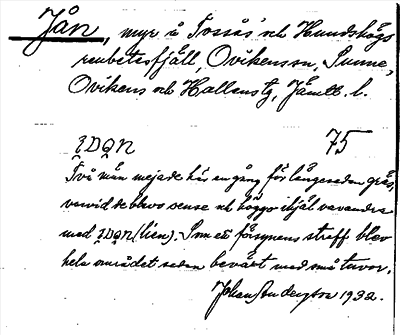 Jån, myr å Tossås och Hundshögs
renbetesfjäll, Ovikenson, Sunne,
Ovikens och Hallens tg, Jämtl. l.
75
Två män mejade här en gång för länge sedan gräs,
varvid de blevo osense och höggo ihjäl varandra
med (lien). Som ett försynens straff blev
hela området sedan bevärt med små tuvor.
Johan Andersson 1932.